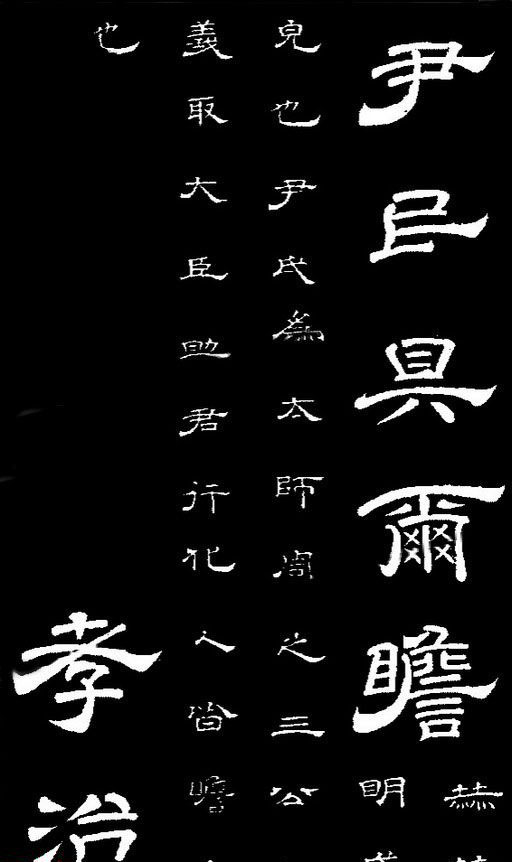 尹民具爾瞻
赫
明
皃也尹氏爲太師周之三公
義取大臣助君行化人皆瞻
也
孝治